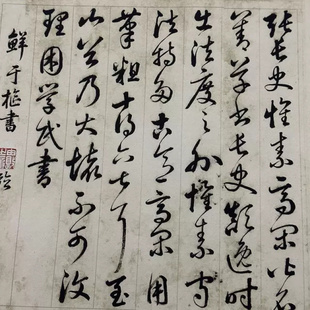 張長史懷素高閑皆名
善草書長史顛逸時
出法度之外懷素守
法特多古意高閑用
筆粗十得六七耳至
山谷乃大壞不可復
理困學民書
鮮于樞書